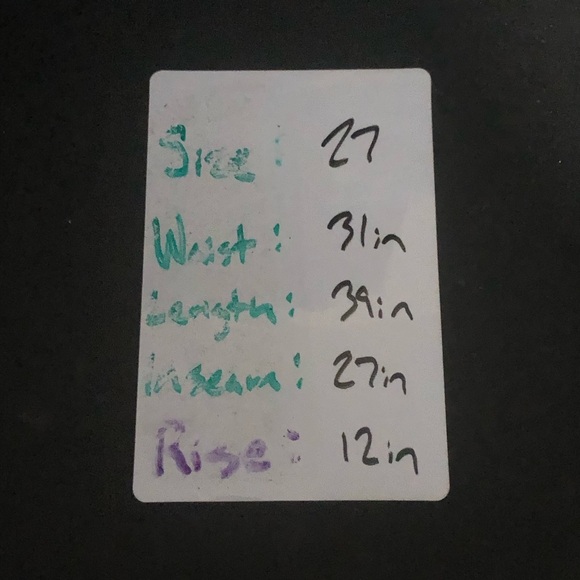 Size: 27
Waist: 31in
Length: 39in
Inseam: 27in
Rise: 12in